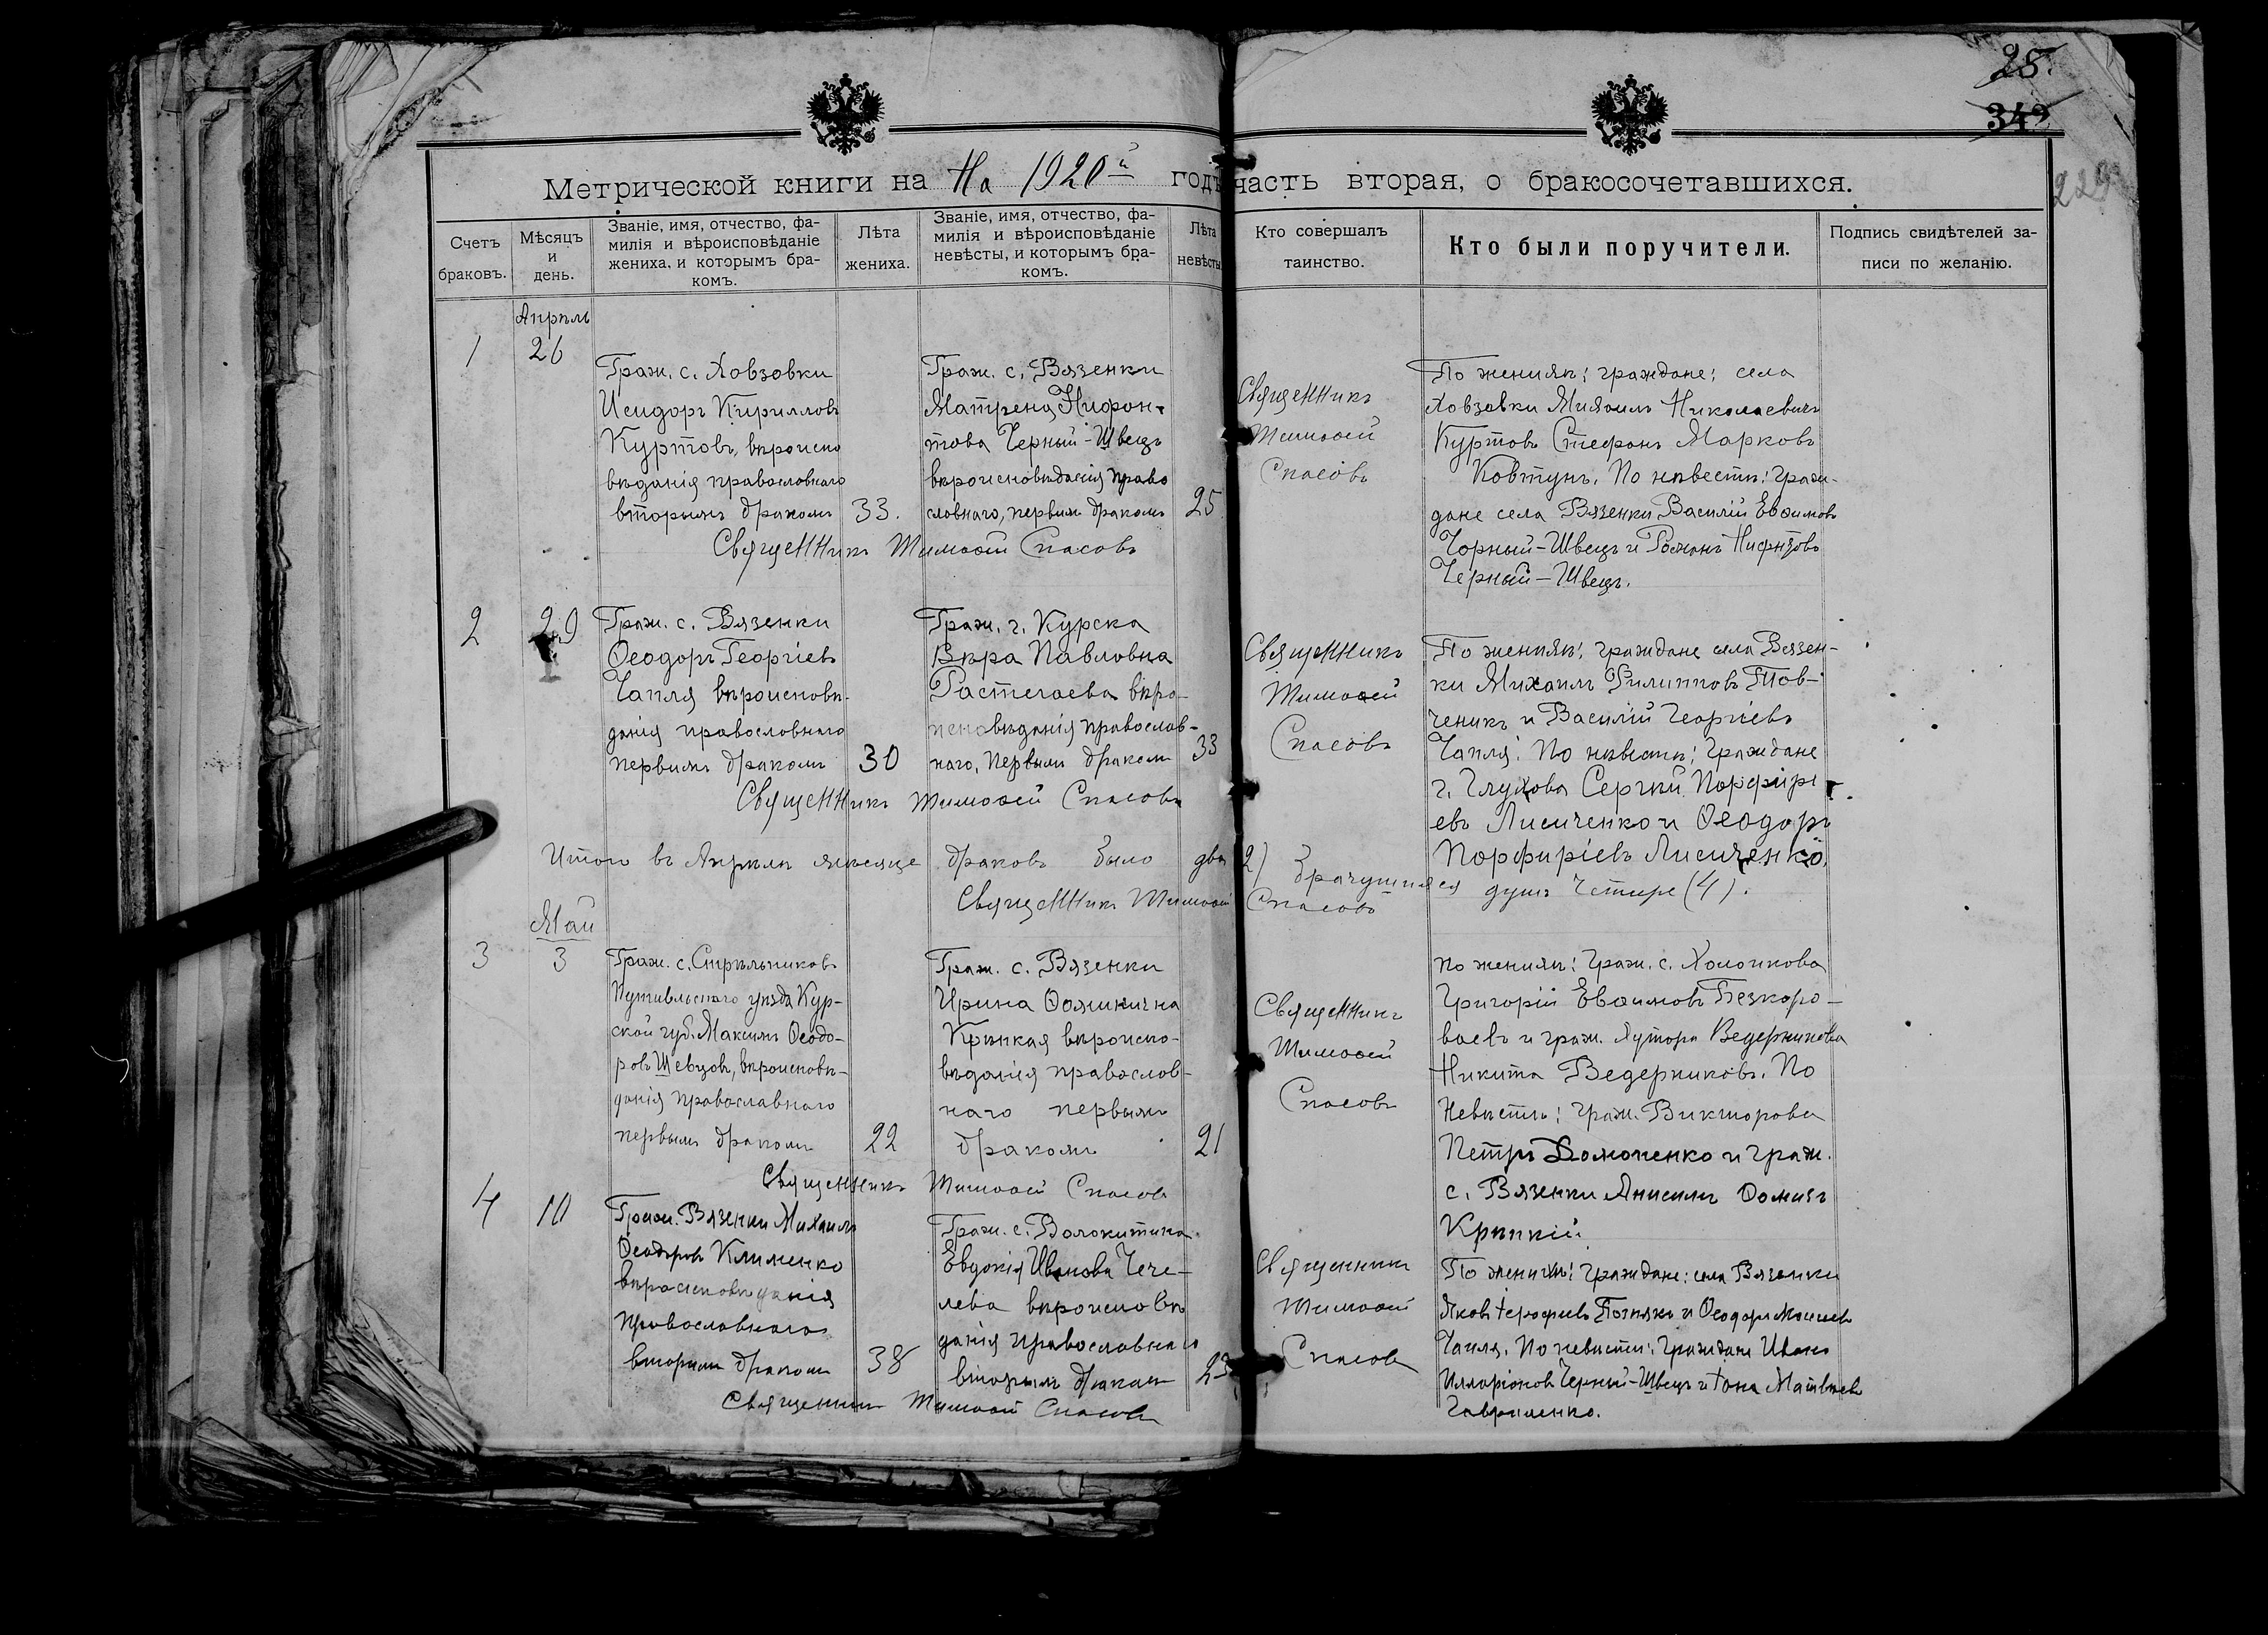 25.
349
229
Метрической книги на На 1920й годъ часть вторая, о бракосочетавшихся.
Счетъ браковъ.
Мѣсяцъ и день.
Званіе, имя, отчество, фа-
милія и вѣроисповѣданіе
жениха, и которымъ бра-
комъ.
Лѣта жениха.
Званіе, имя, отчество, фа-
милія и вѣроисповѣданіе
невѣсты, и которымъ бра-
комъ.
Лѣта невѣсты
Кто совершалъ
таинство.
Кто были поручители.
Подпись свидѣтелей за-
писи по желанію.
Апрѣль
1
26
Граж. с. Ховзовки
Исидоръ Кирилловъ
Куртовъ, вѣроиспо
вѣданія православнаго
вторымъ бракомъ
33.
Граж. с. Вязенки
Матрена Нифон-
това Черный-Швецъ
вѣроисповѣданія право
славнаго, первым бракомъ
25
Священникъ Тимоѳей Спасовъ
Священникъ
Тимоѳей
Спасовъ
По женихѣ: граждане: села
Ховзовки Михаилъ Николаевичъ
Куртовъ Стефанъ Марковъ
Ковтунъ. По невѣстѣ: граж-
дане села Вязенки Василій Евѳимовъ
Чорный-Швецъ и Романъ Нифнтовъ
Черный-Швецъ.
2
29
Граж. с. Вязенки
Ѳеодоръ Георгіевъ
Чапля вѣроисповѣ-
данія православнаго
первымъ бракомъ
30
Граж. г. Курска
Вѣра Павловна
Растегаева вѣро-
исповѣданія православ-
наго, первым браком
33
Священникъ Тимоѳей Спасовъ
Священникъ
Тимоѳей
Спасовъ
По женихѣ: граждане села Вязен-
ки Михаилъ Филипповъ Тов-
ченикъ и Василій Георгіевъ
Чапля. По невѣстѣ: Граждане
г. Глухова Сергѣй Порфирі-
евъ Лисиченко и Ѳеодоръ
Порфиріевъ Лисиченко.
Итого въ Апрѣлѣ мѣсяце браковъ было два 2) брачущихся душъ четыре (4).
Священникъ Тимоѳей Спасовъ
Май
3
3
Граж. с. Стрѣльниковъ
Путивльскаго уѣзда Кур-
ской губ. Максимъ Ѳеодо-
ровъ Шевцовъ, вѣроисповѣ-
данія православнаго
первымъ бракомъ
22
Граж. с. Вязенки
Ирина Ѳоминична
Крѣпкая вѣроиспо-
вѣданія православ-
наго первымъ
бракомъ
21
Священникъ Тимоѳей Спасовъ
Священникъ
Тимоѳей
Спасовъ
По женихѣ: Граж. с. Холопкова
Григорій Евѳимовъ Безкоро-
ваевъ и граж. хутора Ведерникова
Никита Ведерниковъ. По
Невѣстѣ: граж. Викторова
Петръ Домоненко и граж.
с. Вязенки Анисимъ Ѳомичъ
Крѣпкій.
4
10
Граж. Вязенки Михаилъ
Ѳеодоровъ Клименко
вѣроисповѣданія
православнаго
вторымъ бракомъ
38
Граж. с. Волокитина
Евдокія Иванова Чече-
лева вѣроисповѣ
данія православнаго
вторымъ бракомъ
23
Священникъ Тимоѳей Спасовъ
Священникъ
Тимоѳей
Спасовъ
По женихѣ: граждане: села Вязенки
Яковъ Ѳеодоръ Моисеевъ
Чапля. По невѣстѣ: Граждане Иванъ
Илларіоновъ Черный-Швецъ и Іона Матвѣевъ
Гавриленко.